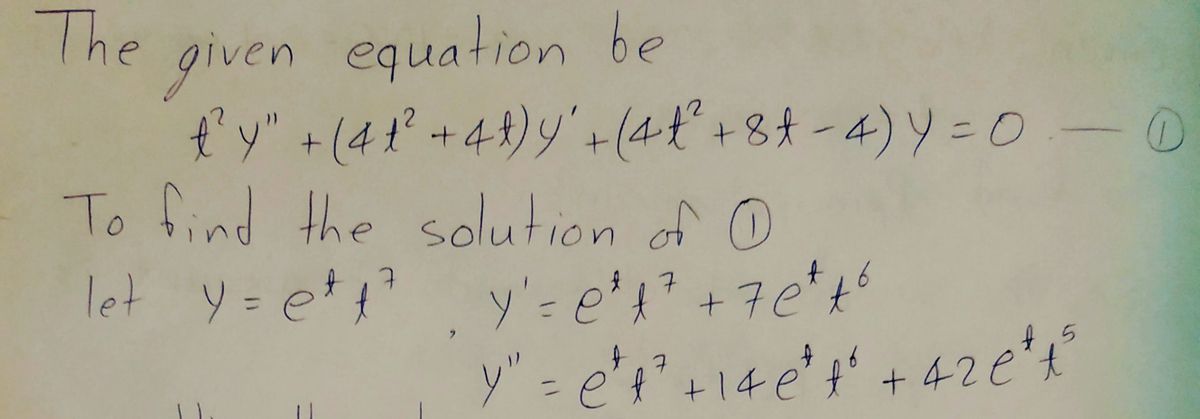 The given equation be
t²y" + (4t² + 4t)y' + (4t² + 8t - 4)y = 0 — ①
To find the solution of ①
let y = eᵗt⁷, y' = eᵗt⁷ + 7eᵗt⁶
y" = eᵗt⁷ + 14eᵗt⁶ + 42eᵗt⁵